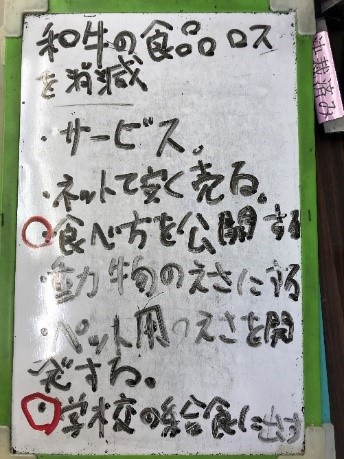 和牛の食品ロス
を消滅
・サービス。
・ネットで安く売る。
・食べ方を公開する
・動物のえさにする
・ペット用のえさを開
発する。
・学校の給食に出す
裁済み